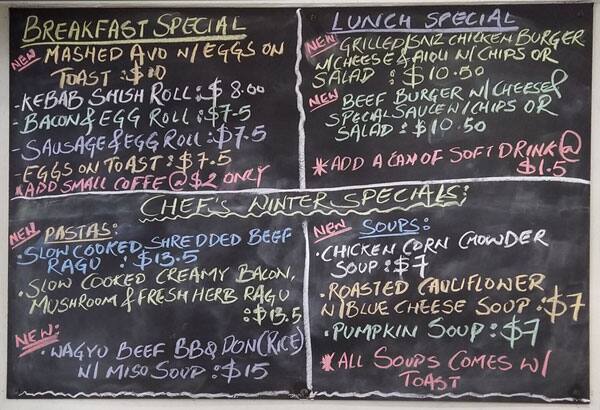 BREAKFAST SPECIAL
NEW MASHED AVO W/ EGGS ON
TOAST : $10
-KEBAB SHISH ROLL : $8.00
-BACON & EGG ROLL : $7.5
-SAUSAGE & EGG ROLL : $7.5
-EGGS ON TOAST : $7.5
*ADD SMALL COFFE @ $2 ONLY
LUNCH SPECIAL
NEW GRILLED/SNZ CHICKEN BURGER
W/CHEESE & AIOLI W/ CHIPS OR
SALAD : $10.50
NEW BEEF BURGER W/ CHEESE &
SPECIAL SAUCE W/ CHIPS OR
SALAD : $10.50
*ADD A CAN OF SOFT DRINK @
$1.5
CHEF'S WINTER SPECIALS:
NEW PASTAS:
·SLOW COOKED SHREDDED BEEF
RAGU : $13.5
·SLOW COOKED CREAMY BACON,
MUSHROOM & FRESH HERB RAGU
: $13.5
NEW:
·WAGYU BEEF BBQ DON (RICE)
W/ MISO SOUP : $15
NEW SOUPS:
·CHICKEN CORN CHOWDER
SOUP : $7
·ROASTED CAULIFLOWER
W/BLUE CHEESE SOUP : $7
·PUMPKIN SOUP : $7
*ALL SOUPS COMES W/
TOAST